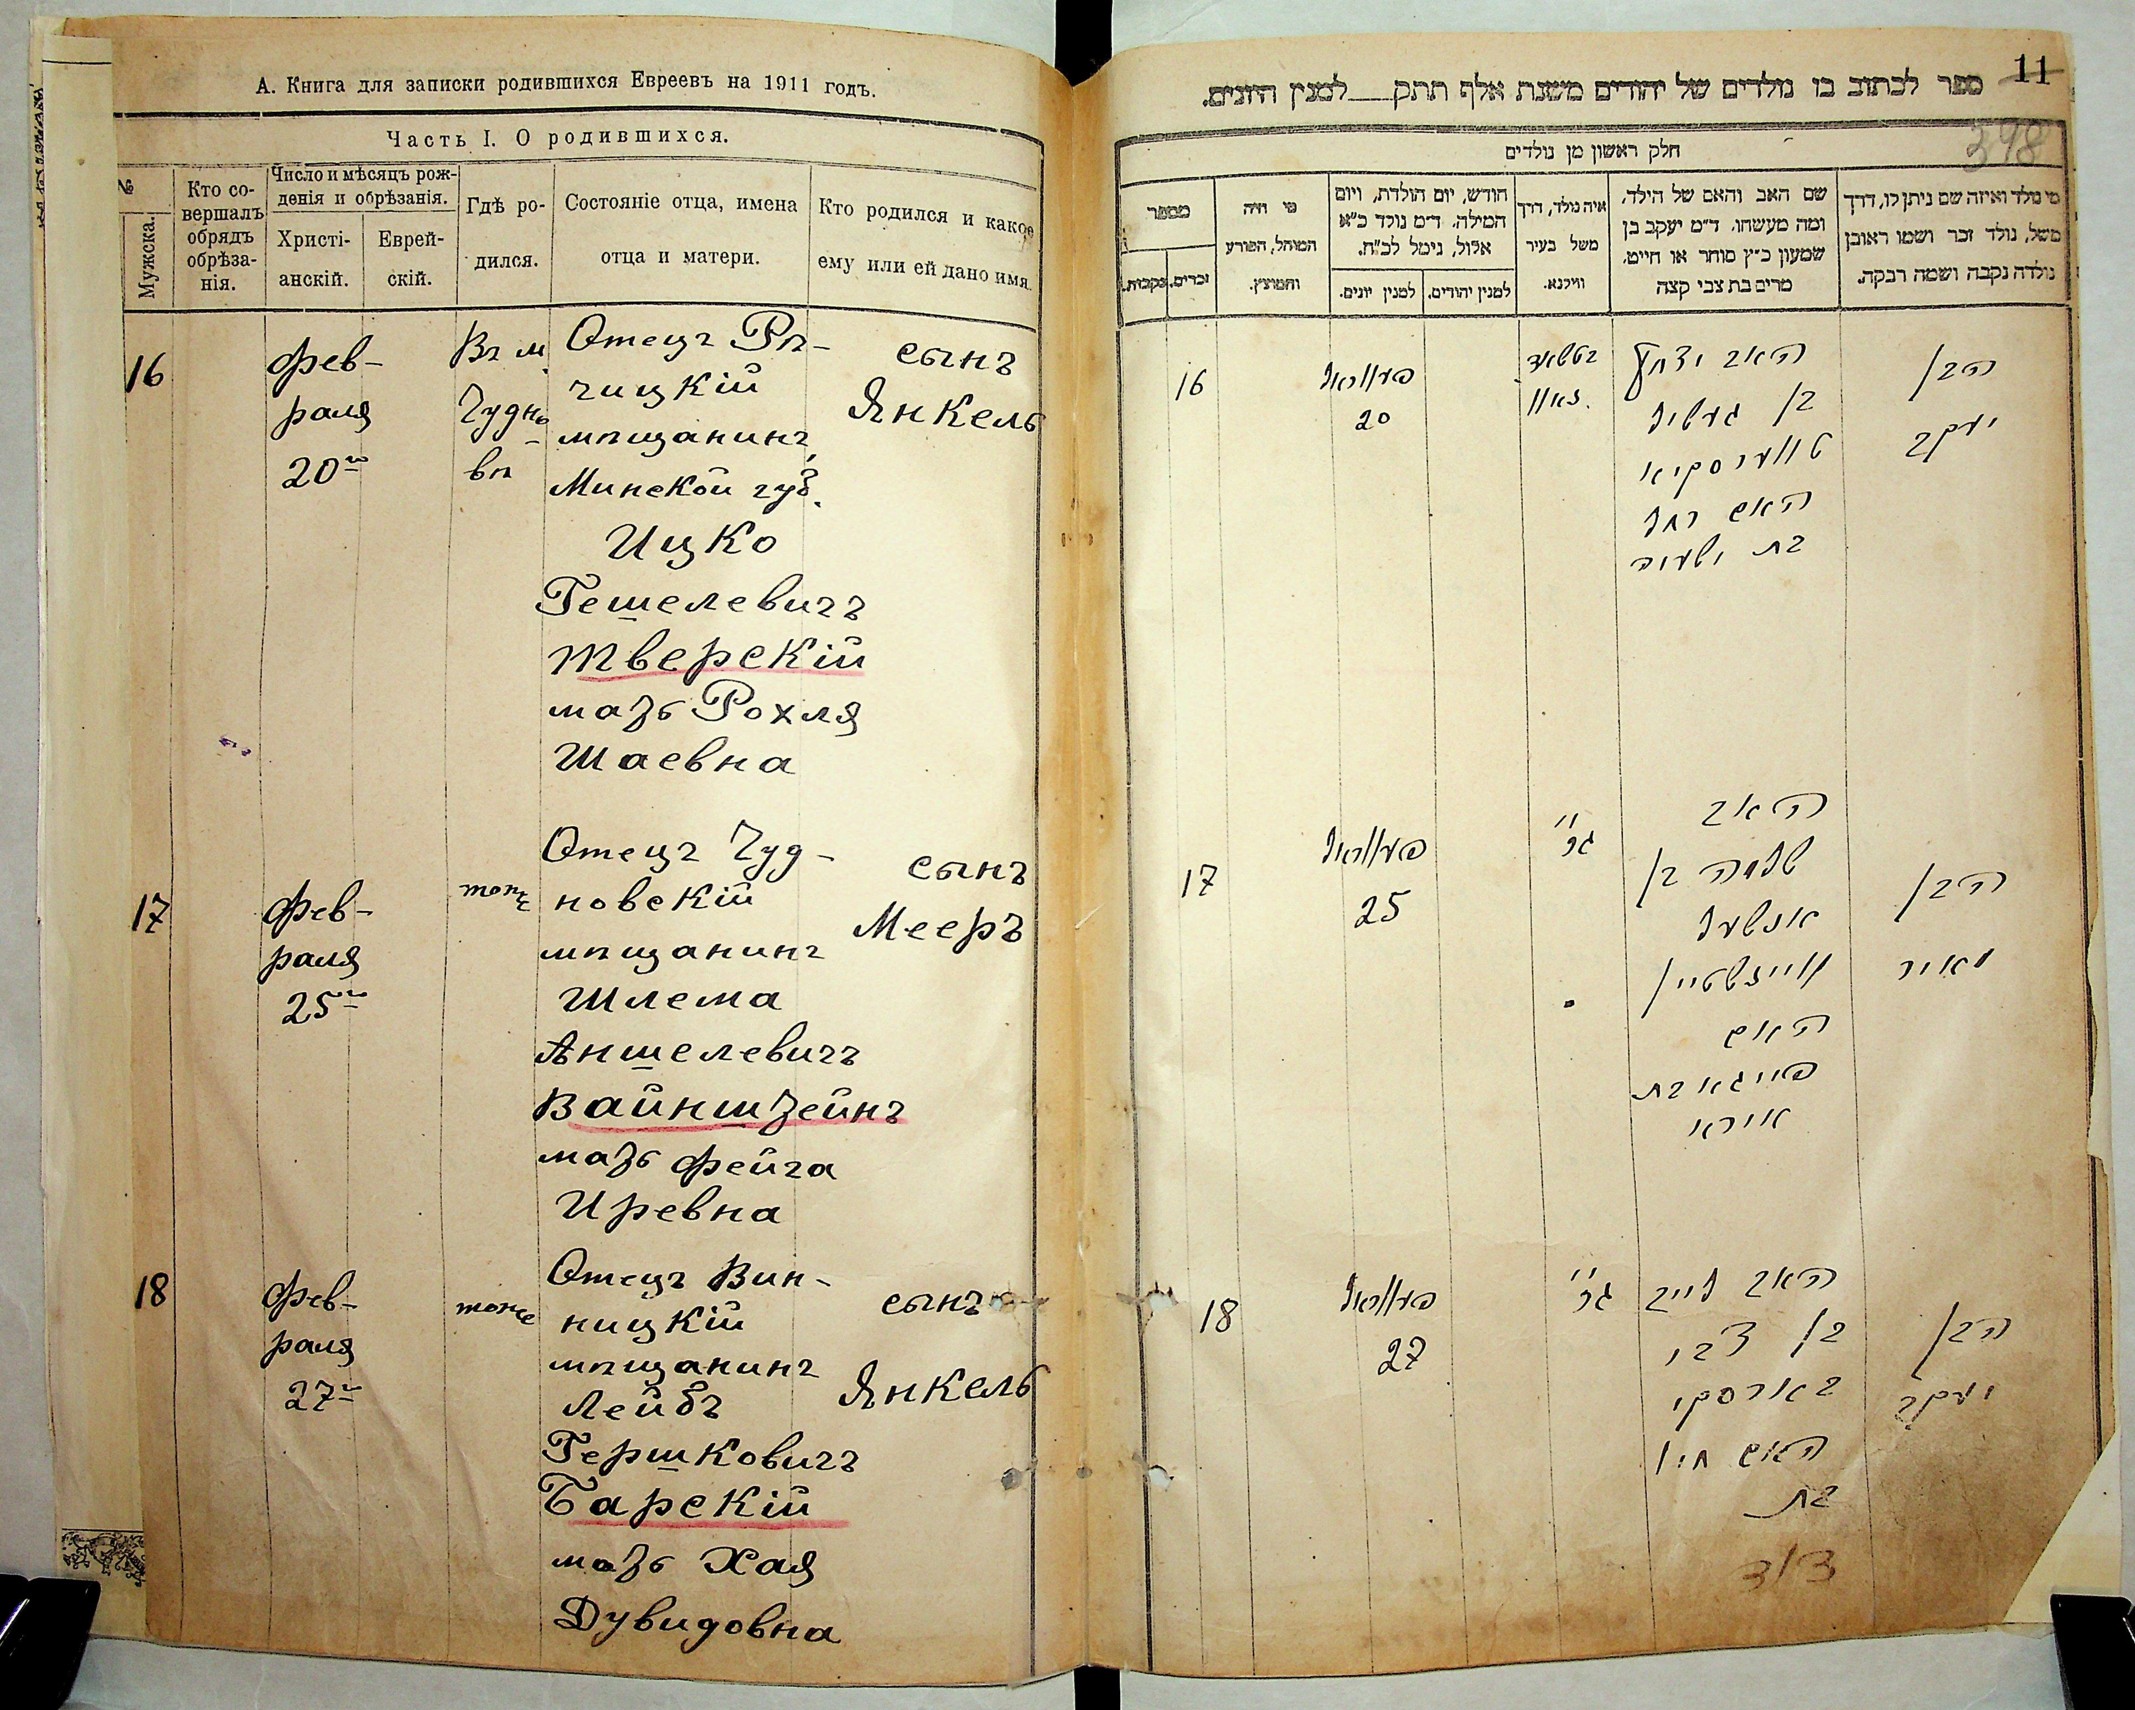 А. Книга для записки родившихся Евреевъ на 1911 годъ.
Часть I. О родившихся.
№
Мужска.
Кто со-
вершалъ
обрядъ
обрѣза-
нія.
Число и мѣсяцъ рож-
денія и обрѣзанія.
Христі-
анскій.
Еврей-
скій.
Гдѣ ро-
дился.
Состояніе отца, имена
отца и матери.
Кто родился и какое
ему или ей дано имя.
16
Фев-
раля
20го
Въ м.
Чудно-
вѣ
Отецъ Рѣ-
чицкій
мѣщанинъ,
Минской губ.
Ицко
Гешелевичъ
Тверскій
мать Рохля
Шаевна
сынъ
Янкель
17
Фев-
раля
25го
тоже
Отецъ Чуд-
новскій
мѣщанинъ
Шлема
Аншелевичъ
Вайнштейнъ
мать Фейга
Иревна
сынъ
Мееръ
18
Фев-
раля
27го
тоже
Отецъ Вин-
ницкій
мѣщанинъ
Лейбъ
Гершковичъ
Барскій
мать Хая
Дувидовна
сынъ
Янкель
11
398
ספר לכתוב בו נולדים של יהודים משנת אלף תתק___למנין היונים.
חלק ראשון מן נולדים
מי נולד ואיזה שם ניתן לו, דרך
משל, נולד זכר ושמו ראובן
נולדה נקבה ושמה רבקה.
שם האב והאם של הילד,
ומה מעשהו. ד״מ יעקב בן
שמעון כ״ץ סוחר או חייט,
מרים בת צבי קצה
איה נולד, דרך
משל בעיר
ווילנא.
חודש, יום הולדת, ויום
המילה. ד״מ נולד כ״א
אלול, נימל לכ״ח.
למנין יהודים.
למנין יונים.
מי היה
המוהל, הפורע
והמוצץ.
מספר
זכרים.
נקבות.
הבן
יעקב
האב יצחק
בן געשיל
טווערסקיא
האם רחל
בת ישעיה
פעוורואל
20
16
הבן
מאיר
האב
שלמה בן
אנשעל
וויינשטיין
האם
פייגא בת
אורא
פעוורואל
25
17
הבן
יעקב
האב לייב
בן צבי
בארסקי
האם חיה
בת
דוד
פעוורואל
27
18